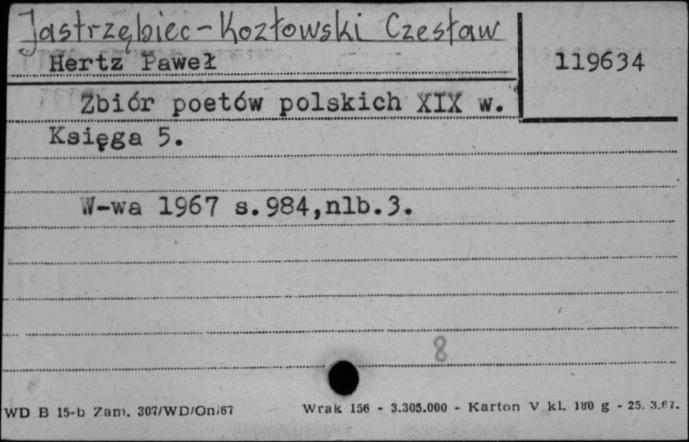 Jastrzębiec-Kozłowski Czesław
Hertz Paweł
119634
Zbiór poetów polskich XIX w.
Księga 5.
W-wa 1967 s.984,nlb.3.
8
WD B 15-b Zam. 307/WD/Oni67
Wrak 156 - 3.305.000 - Karton V kl. 180 g - 25. 3.67.